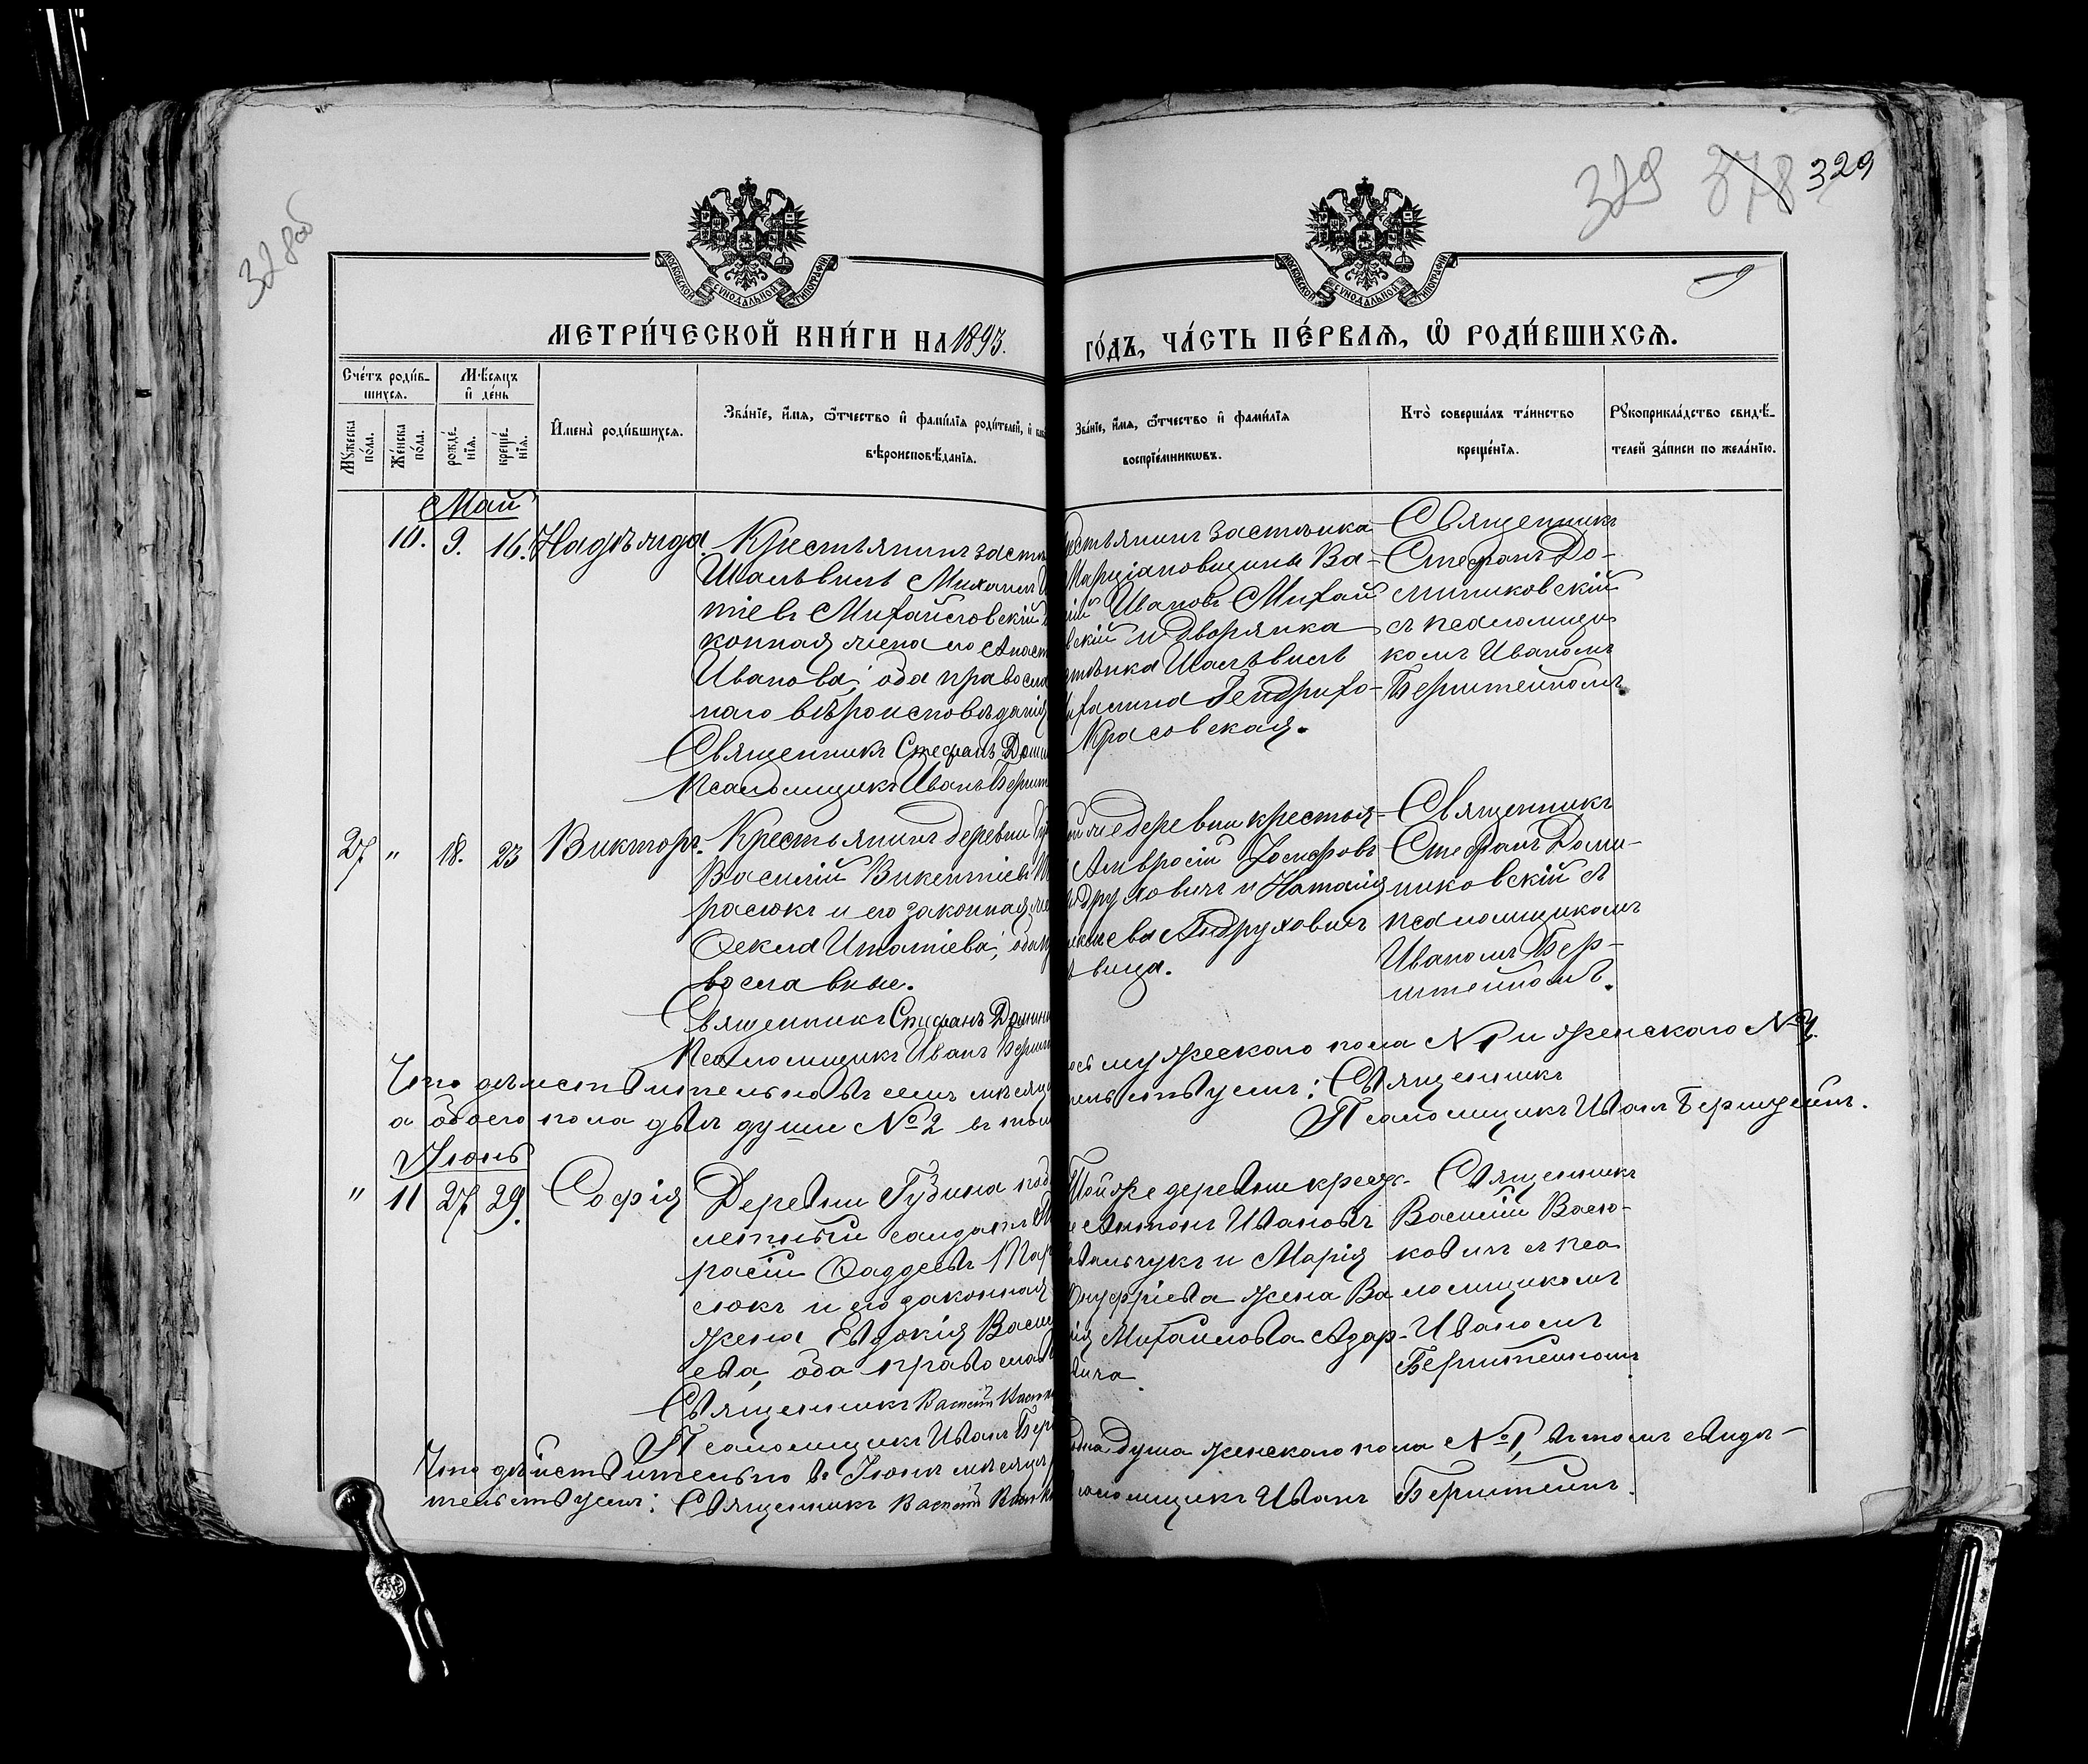 328об
329 378 329
МОСКОВСКОЙ СѴНОДАЛЬНОЙ ТИПОГРАФІИ
МОСКОВСКОЙ СѴНОДАЛЬНОЙ ТИПОГРАФІИ
МЕТРИ́ЧЕСКОЙ КНИ́ГИ НА 1893.
ГО́ДЪ, ЧА́СТЬ ПЕ́РВАѦ, Ѿ РОДИ́ВШИХСѦ.
Сче́тъ роди́вшихсѧ.
Мꙋ́жеска по́ла.
Же́нска по́ла.
Мѣ́сѧцъ и҆ де́нь
рожде́нїѧ.
креще́нїѧ.
И҆мена̀ роди́вшихсѧ.
Зва́нїе, и҆́мѧ, ѻ҆́тчество и҆ фами́лїѧ роди́телей, и҆
вѣроисповѣ́данїѧ.
Зва́нїе, и҆́мѧ, ѻ҆́тчество и҆ фами́лїѧ
воспрїе́мникѡвъ.
Кто̀ соверша́лъ та́инство
креще́нїѧ.
Рꙋкоприкла́дство свидѣ́-
телей за́писи по жела́нїю.
Май
10. 9. 16. Надѣжда.
Крестьянинъ заст
Шальвилъ Михаилъ
тіевъ Михайловскій
конная жена его Анаст
Иванова, оба правосла
наго вѣроисповѣданія
Священникъ Стефанъ Доми
Псаломщикъ Иванъ Бершт
естьянинъ застѣнка
Марціановщины Ва-
лій Ивановъ Михай
вскій и дворянка
стѣнка Шальвилъ
Гендрихо-
Красовская.
Священникъ
Стефанъ До-
миниковскій
съ псаломщи
комъ Иваномъ
Берштейномъ.
27 " 18. 23 Викторъ.
Крестьянинъ деревни
Василій Викентіевъ
расюкъ и его законная
Ѳекла Игнатіева; оба
вославные.
Священникъ Стефанъ Домини
Псаломщикъ Иванъ Бершт
же деревни крестья-
Амвросій Іосифовъ
друховичъ и Наталія
ева Андруховичъ
вица.
Священникъ
Стефанъ Доми-
никовскій съ
псаломщикомъ
Иваномъ Бер-
штейномъ.
Что дѣйствительно въ семъ мѣсяц
ось мужескаго пола №1 и женскаго №1.
а обоего пола двѣ души №2 въ томъ
ствуемъ: Священникъ
Псаломщикъ Иванъ Берштейнъ.
Іюнь
" 11 27 29. Софія
Деревни Губина
летный солдатъ
расій Ѳаддеевъ Тар
сюкъ и его законная
жена Евдокія Васил
ева, оба православ
Священникъ Василій
Псаломщикъ Иванъ Бер
Той же деревни крест-
Антонъ Ивановъ
вальчукъ и Марія
Онуфріева жена Ва
лія Михайлова Азар-
вича.
Священникъ
Василій Васю-
ковичъ съ пса
ломщикомъ
Иваномъ
Берштейномъ
Что дѣйствительно въ Іюнѣ мѣсяцѣ
одна душа женскаго пола №1, въ томъ свидѣ-
тельствуемъ: Священникъ Василій
Псаломщикъ Иванъ Берштейнъ.